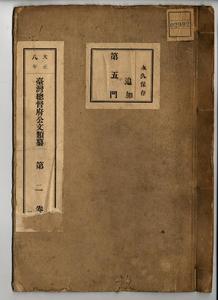 永久保存
追加
第五門
大正
八年
臺灣總督府公文類纂
第二卷